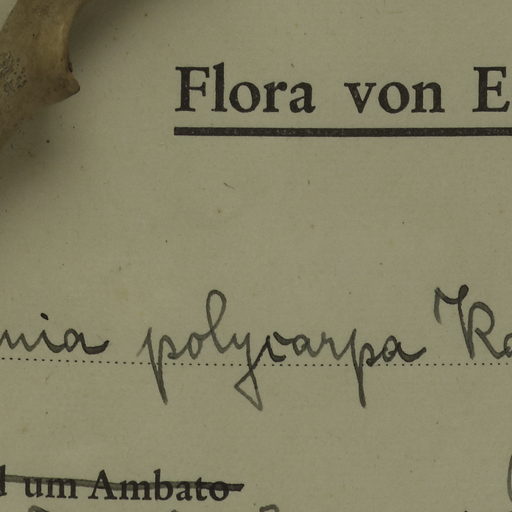 Flora von E
nia polycarpa Ka
d um Ambato